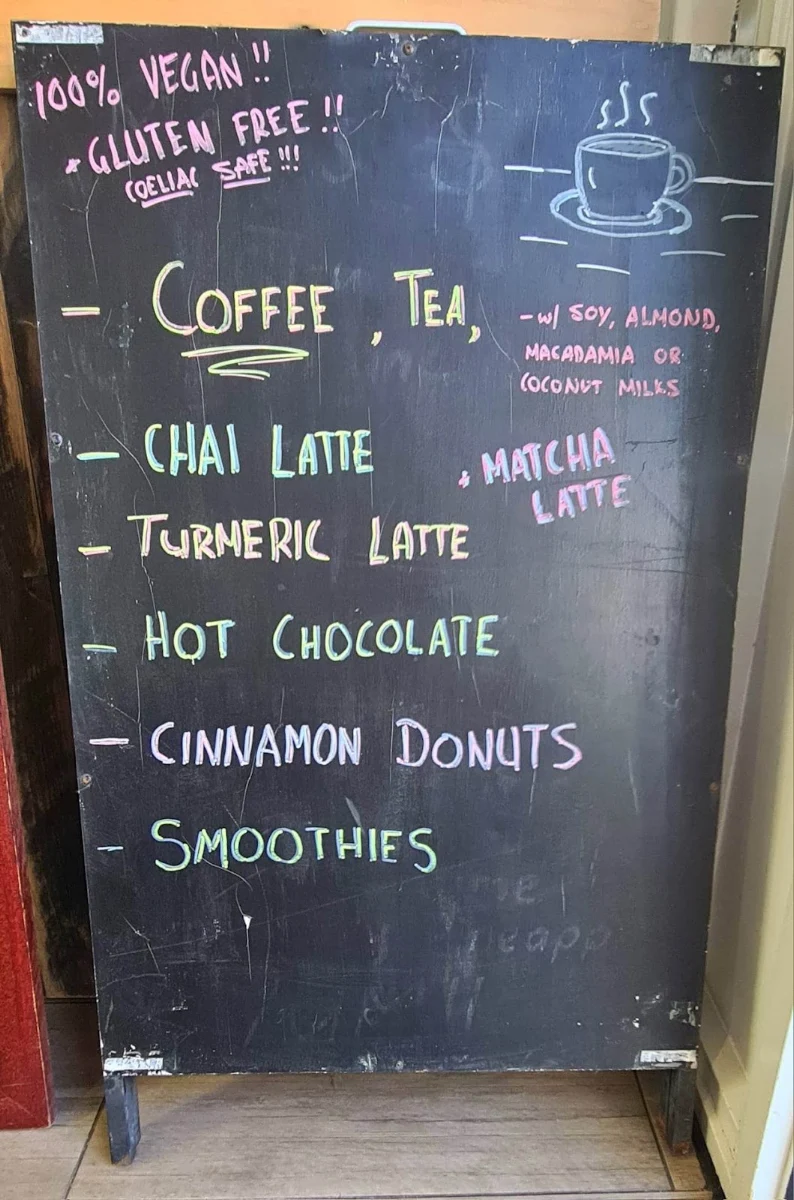 100% VEGAN !!
* GLUTEN FREE !!
COELIAC SAFE !!!
- COFFEE, TEA,
- w/ SOY, ALMOND,
MACADAMIA OR
COCONUT MILKS
- CHAI LATTE
+ MATCHA
LATTE
- TURMERIC LATTE
- HOT CHOCOLATE
- CINNAMON DONUTS
- SMOOTHIES